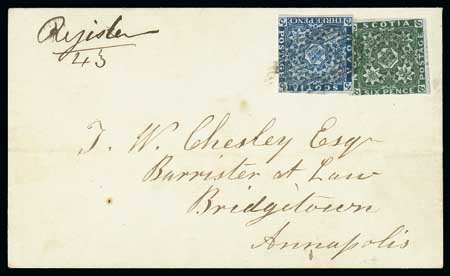 Register
43
THREE PENCE
POSTAGE
SCOTIA
SCOTIA
POSTAGE
SIX PENCE
T. W. Chesley Esqr
Barrister at Law
Bridgetown
Annapolis